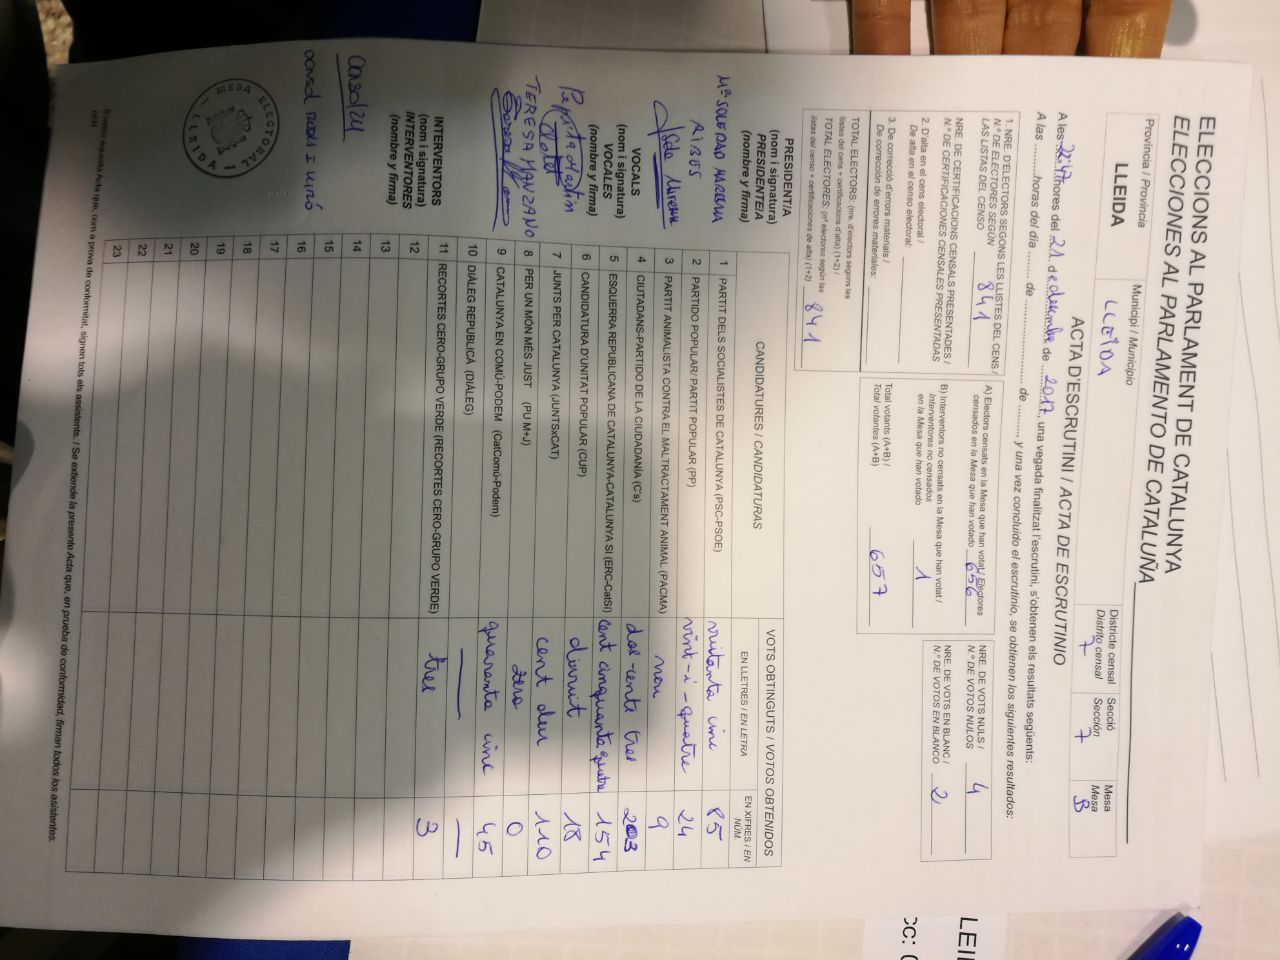 ELECCIONS AL PARLAMENT DE CATALUNYA
ELECCIONES AL PARLAMENTO DE CATALUÑA
Província / Provincia
LLEIDA
Municipi / Municipio
LLEIDA
Districte censal
Distrito censal
7
Secció
Sección
7
Mesa
Mesa
B
ACTA D'ESCRUTINI / ACTA DE ESCRUTINIO
A les 22:47 hores del 21 de desembre de 2017, una vegada finalitzat l'escrutini, s'obtenen els resultats següents:
A las ........ horas del día ........ de ........ de ........, y una vez concluido el escrutinio, se obtienen los siguientes resultados:
1. NRE. D'ELECTORS SEGONS LES LLISTES DEL CENS /
N.º DE ELECTORES SEGÚN
LAS LISTAS DEL CENSO 841
NRE. DE CERTIFICACIONS CENSALS PRESENTADES /
N.º DE CERTIFICACIONES CENSALES PRESENTADAS
2. D'alta en el cens electoral /
De alta en el censo electoral:
3. De correcció d'errors materials /
De corrección de errores materiales:
TOTAL ELECTORS: (nre. d'electors segons les
llistes del cens + certificacions d'alta) (1+2) /
TOTAL ELECTORES: (nº electores según las
listas del censo + certificaciones de alta) (1+2) 841
A) Electors censats en la Mesa que han votat / Electores
censados en la Mesa que han votado 656
B) Interventors no censats en la Mesa que han votat /
Interventores no censados
en la Mesa que han votado 1
Total votants (A+B) /
Total votantes (A+B) 657
NRE. DE VOTS NULS /
N.º DE VOTOS NULOS 4
NRE. DE VOTS EN BLANC /
N.º DE VOTOS EN BLANCO 2
PRESIDENT/A
(nom i signatura)
PRESIDENTE/A
(nombre y firma)
Mª SOLEDAD MARBÀ
RIBES
VOCALS
(nom i signatura)
VOCALES
(nombre y firma)
TERESA MANZANO
INTERVENTORS
(nom i signatura)
INTERVENTORES
(nombre y firma)
CANDIDATURES / CANDIDATURAS
VOTS OBTINGUTS / VOTOS OBTENIDOS
EN LLETRES / EN LETRA
EN XIFRES / EN NÚM.
1 PARTIT DELS SOCIALISTES DE CATALUNYA (PSC-PSOE) vuitanta cinc 85
2 PARTIDO POPULAR/ PARTIT POPULAR (PP) vint-i-quatre 24
3 PARTIT ANIMALISTA CONTRA EL MALTRACTAMENT ANIMAL (PACMA) nou 9
4 CIUTADANS-PARTIDO DE LA CIUDADANÍA (C's) dos-cents tres 203
5 ESQUERRA REPUBLICANA DE CATALUNYA-CATALUNYA SÍ (ERC-CatSí) cent cinquanta quatre 154
6 CANDIDATURA D'UNITAT POPULAR (CUP) divuit 18
7 JUNTS PER CATALUNYA (JUNTSxCAT) cent deu 110
8 PER UN MÓN MÉS JUST (PU M+J) zero 0
9 CATALUNYA EN COMÚ-PODEM (CatComú-Podem) quaranta cinc 45
10 DIÀLEG REPUBLICÀ (DIÀLEG)
11 RECORTES CERO-GRUPO VERDE (RECORTES CERO-GRUPO VERDE) tres 3
12
13
14
15
16
17
18
19
20
21
22
23
MESA ELECTORAL
LLEIDA
S'estén aquesta Acta que, com a prova de conformitat, signen tots els assistents. / Se extiende la presente Acta que, en prueba de conformidad, firman todos los asistentes.